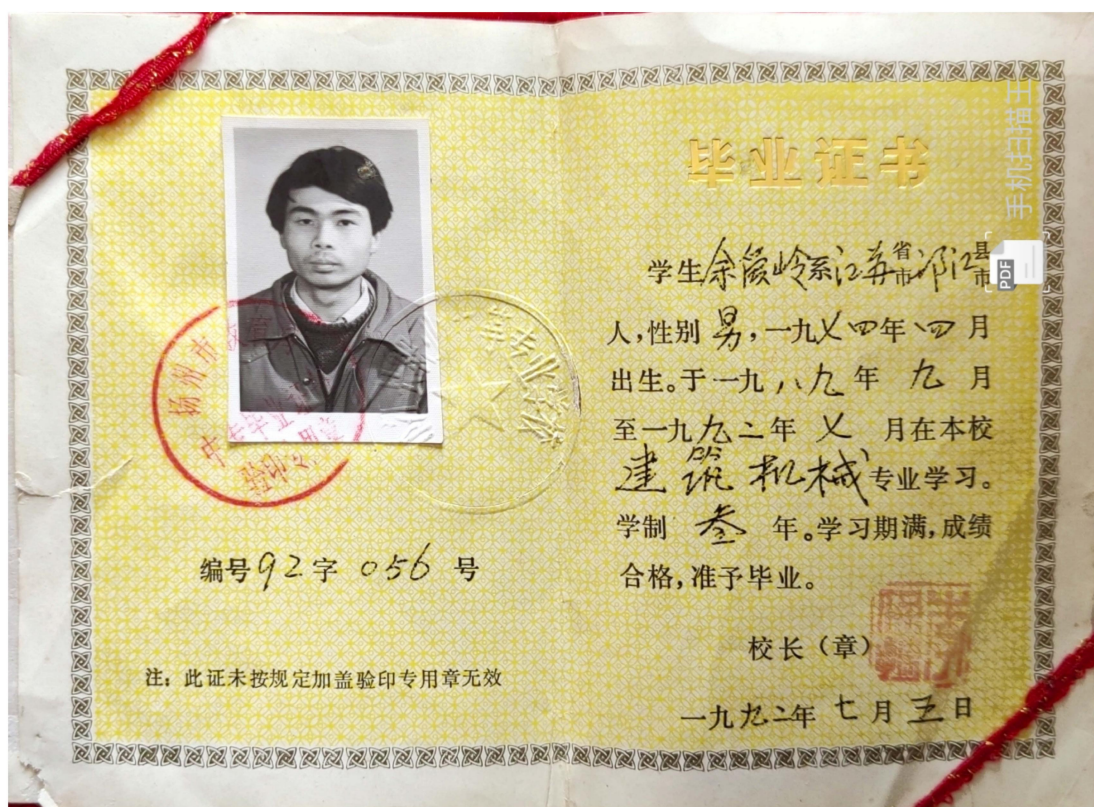 毕业证书
学生余筱岭系江苏省市邗江县市
人,性别 男,一九七四年 四 月
出生。于一九 八九 年 九 月
至一九九二年 七 月在本校
建筑机械专业学习。
学制 叁 年。学习期满,成绩
合格,准予毕业。
校长(章)
一九九二年 七 月 五 日
扬州市教育
中专毕业证
验印专用章
等专业学校
编号92字 056 号
注:此证未按规定加盖验印专用章无效
手机扫描王
PDF